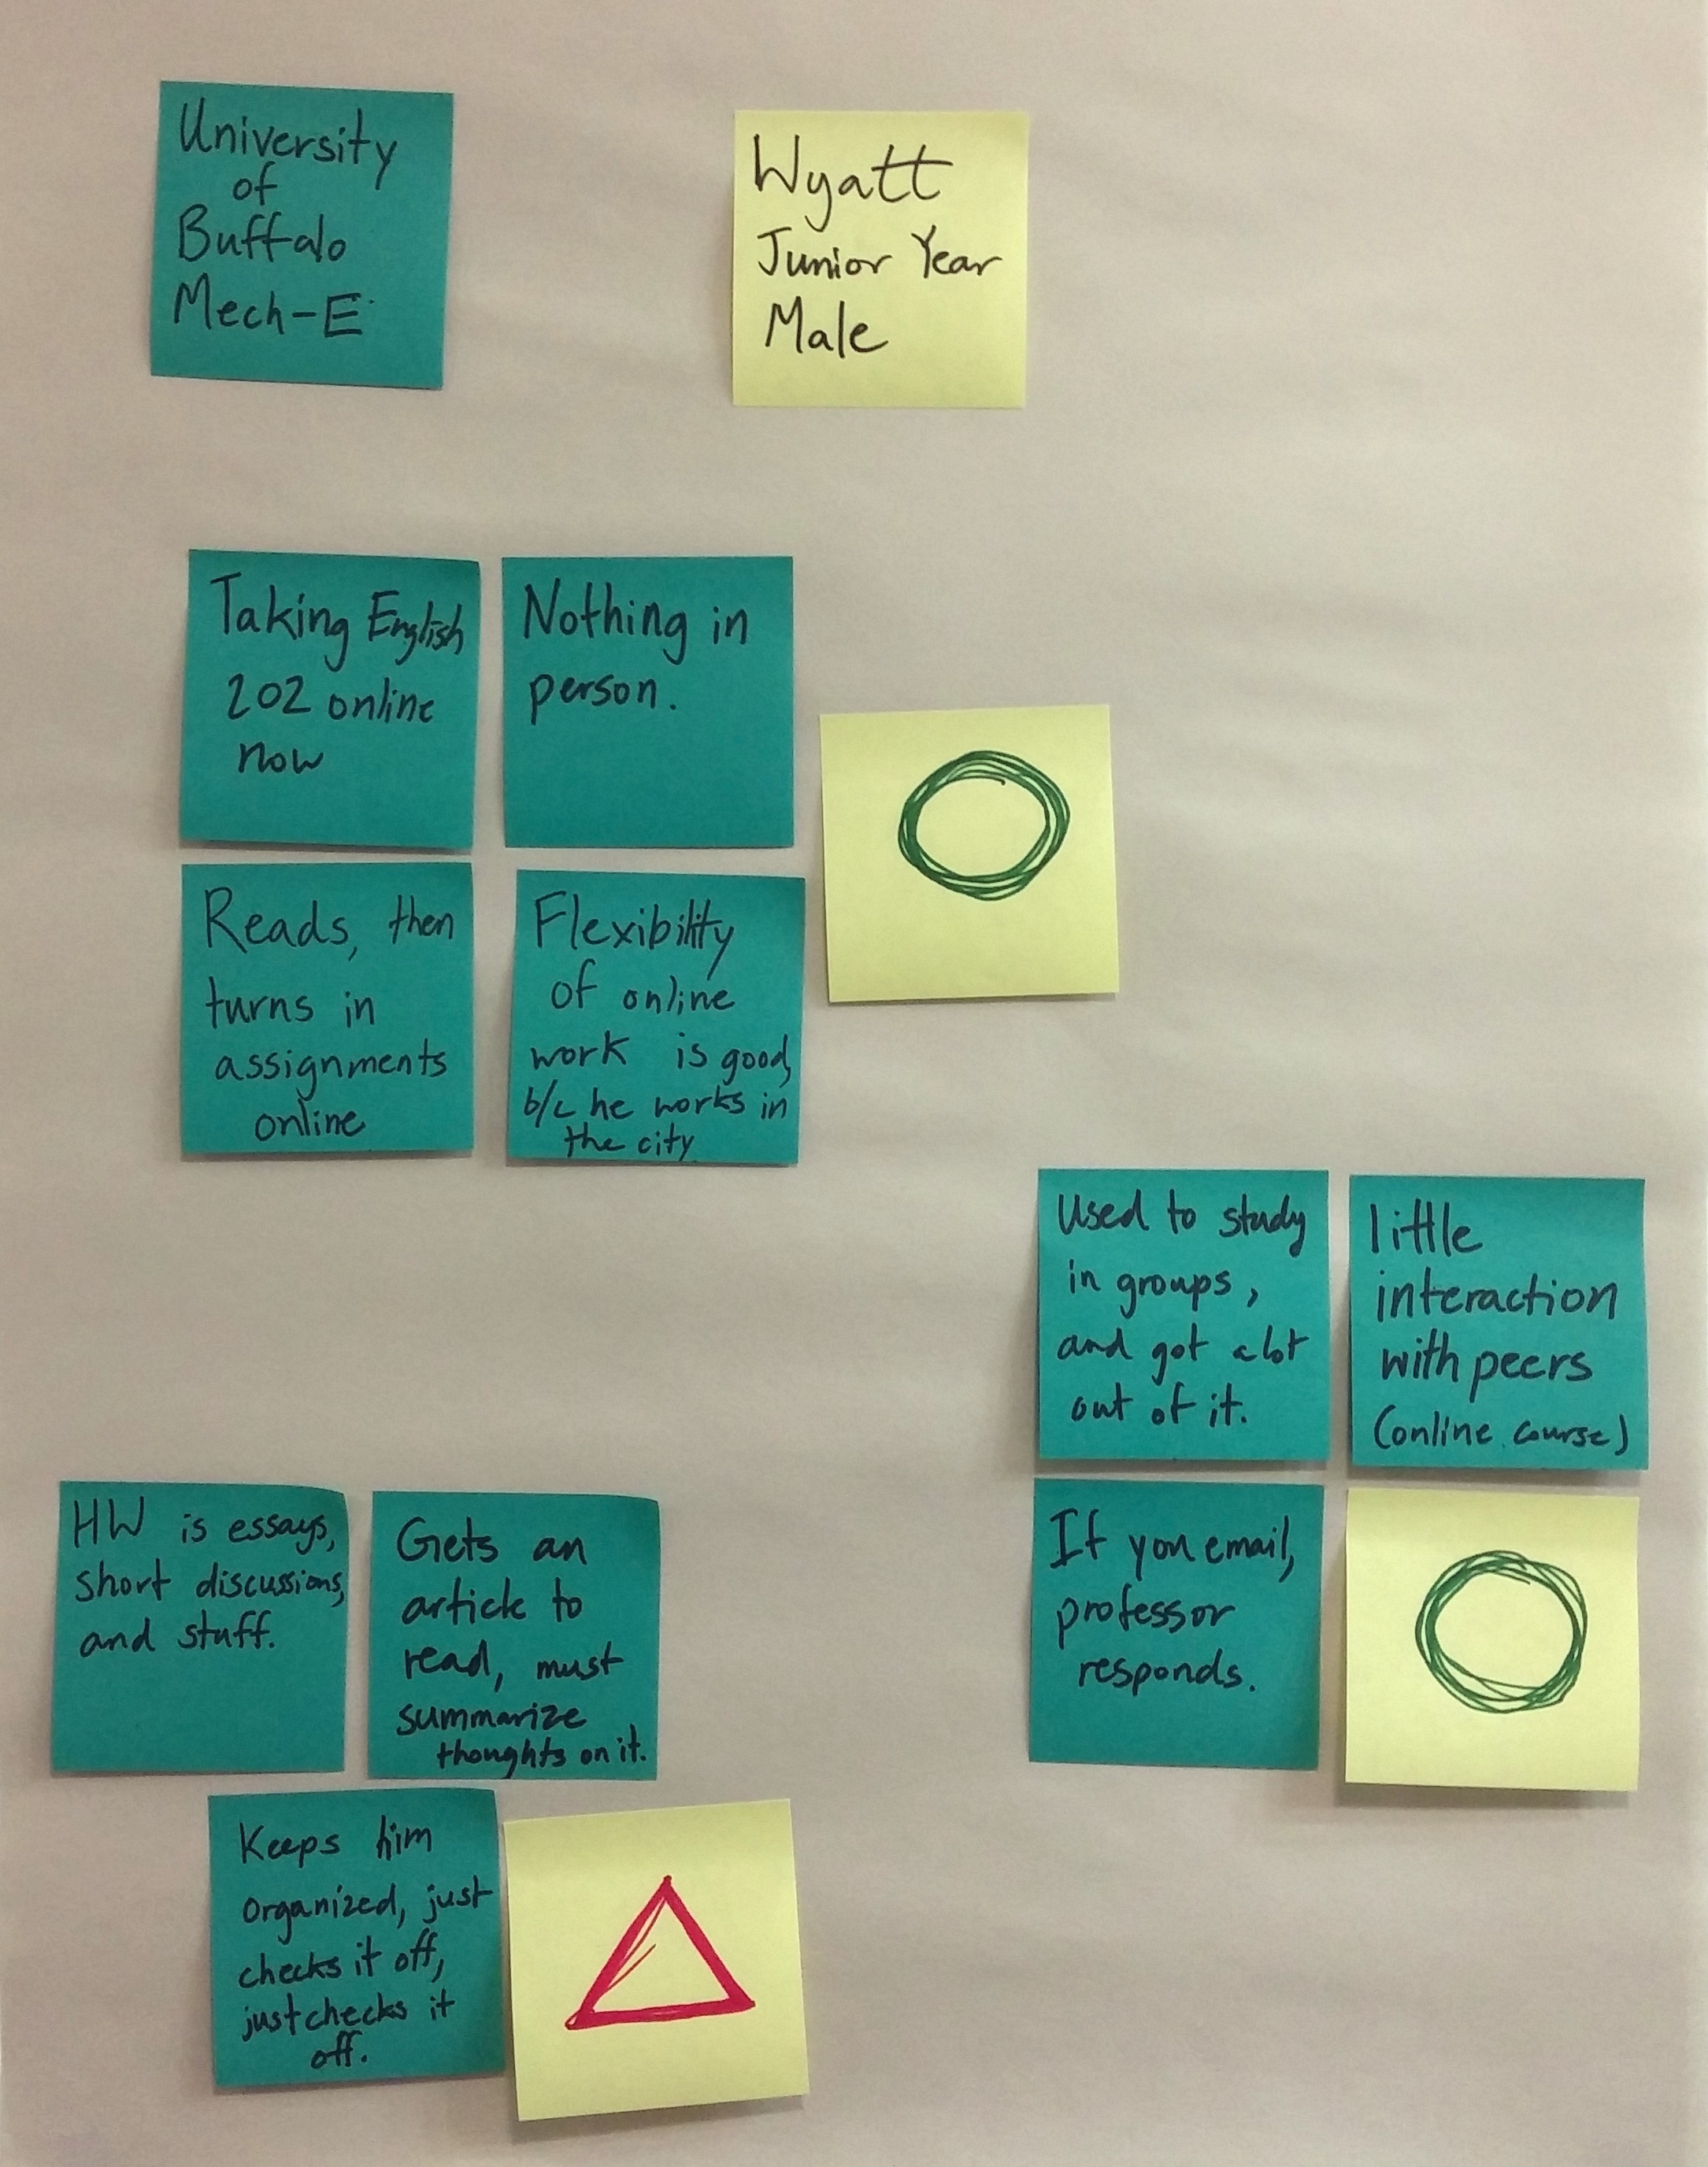 University
of
Buffalo
Mech-E
Wyatt
Junior Year
Male
Taking English
202 online
now
Nothing in
person.
Reads, then
turns in
assignments
online
Flexibility
of online
work is good,
b/c he works in
the city
Used to study
in groups,
and got a lot
out of it.
little
interaction
with peers
(online course)
If you email,
professor
responds.
HW is essays,
short discussions,
and stuff.
Gets an
article to
read, must
summarize
thoughts on it.
Keeps him
organized, just
checks it off,
just checks it
off.